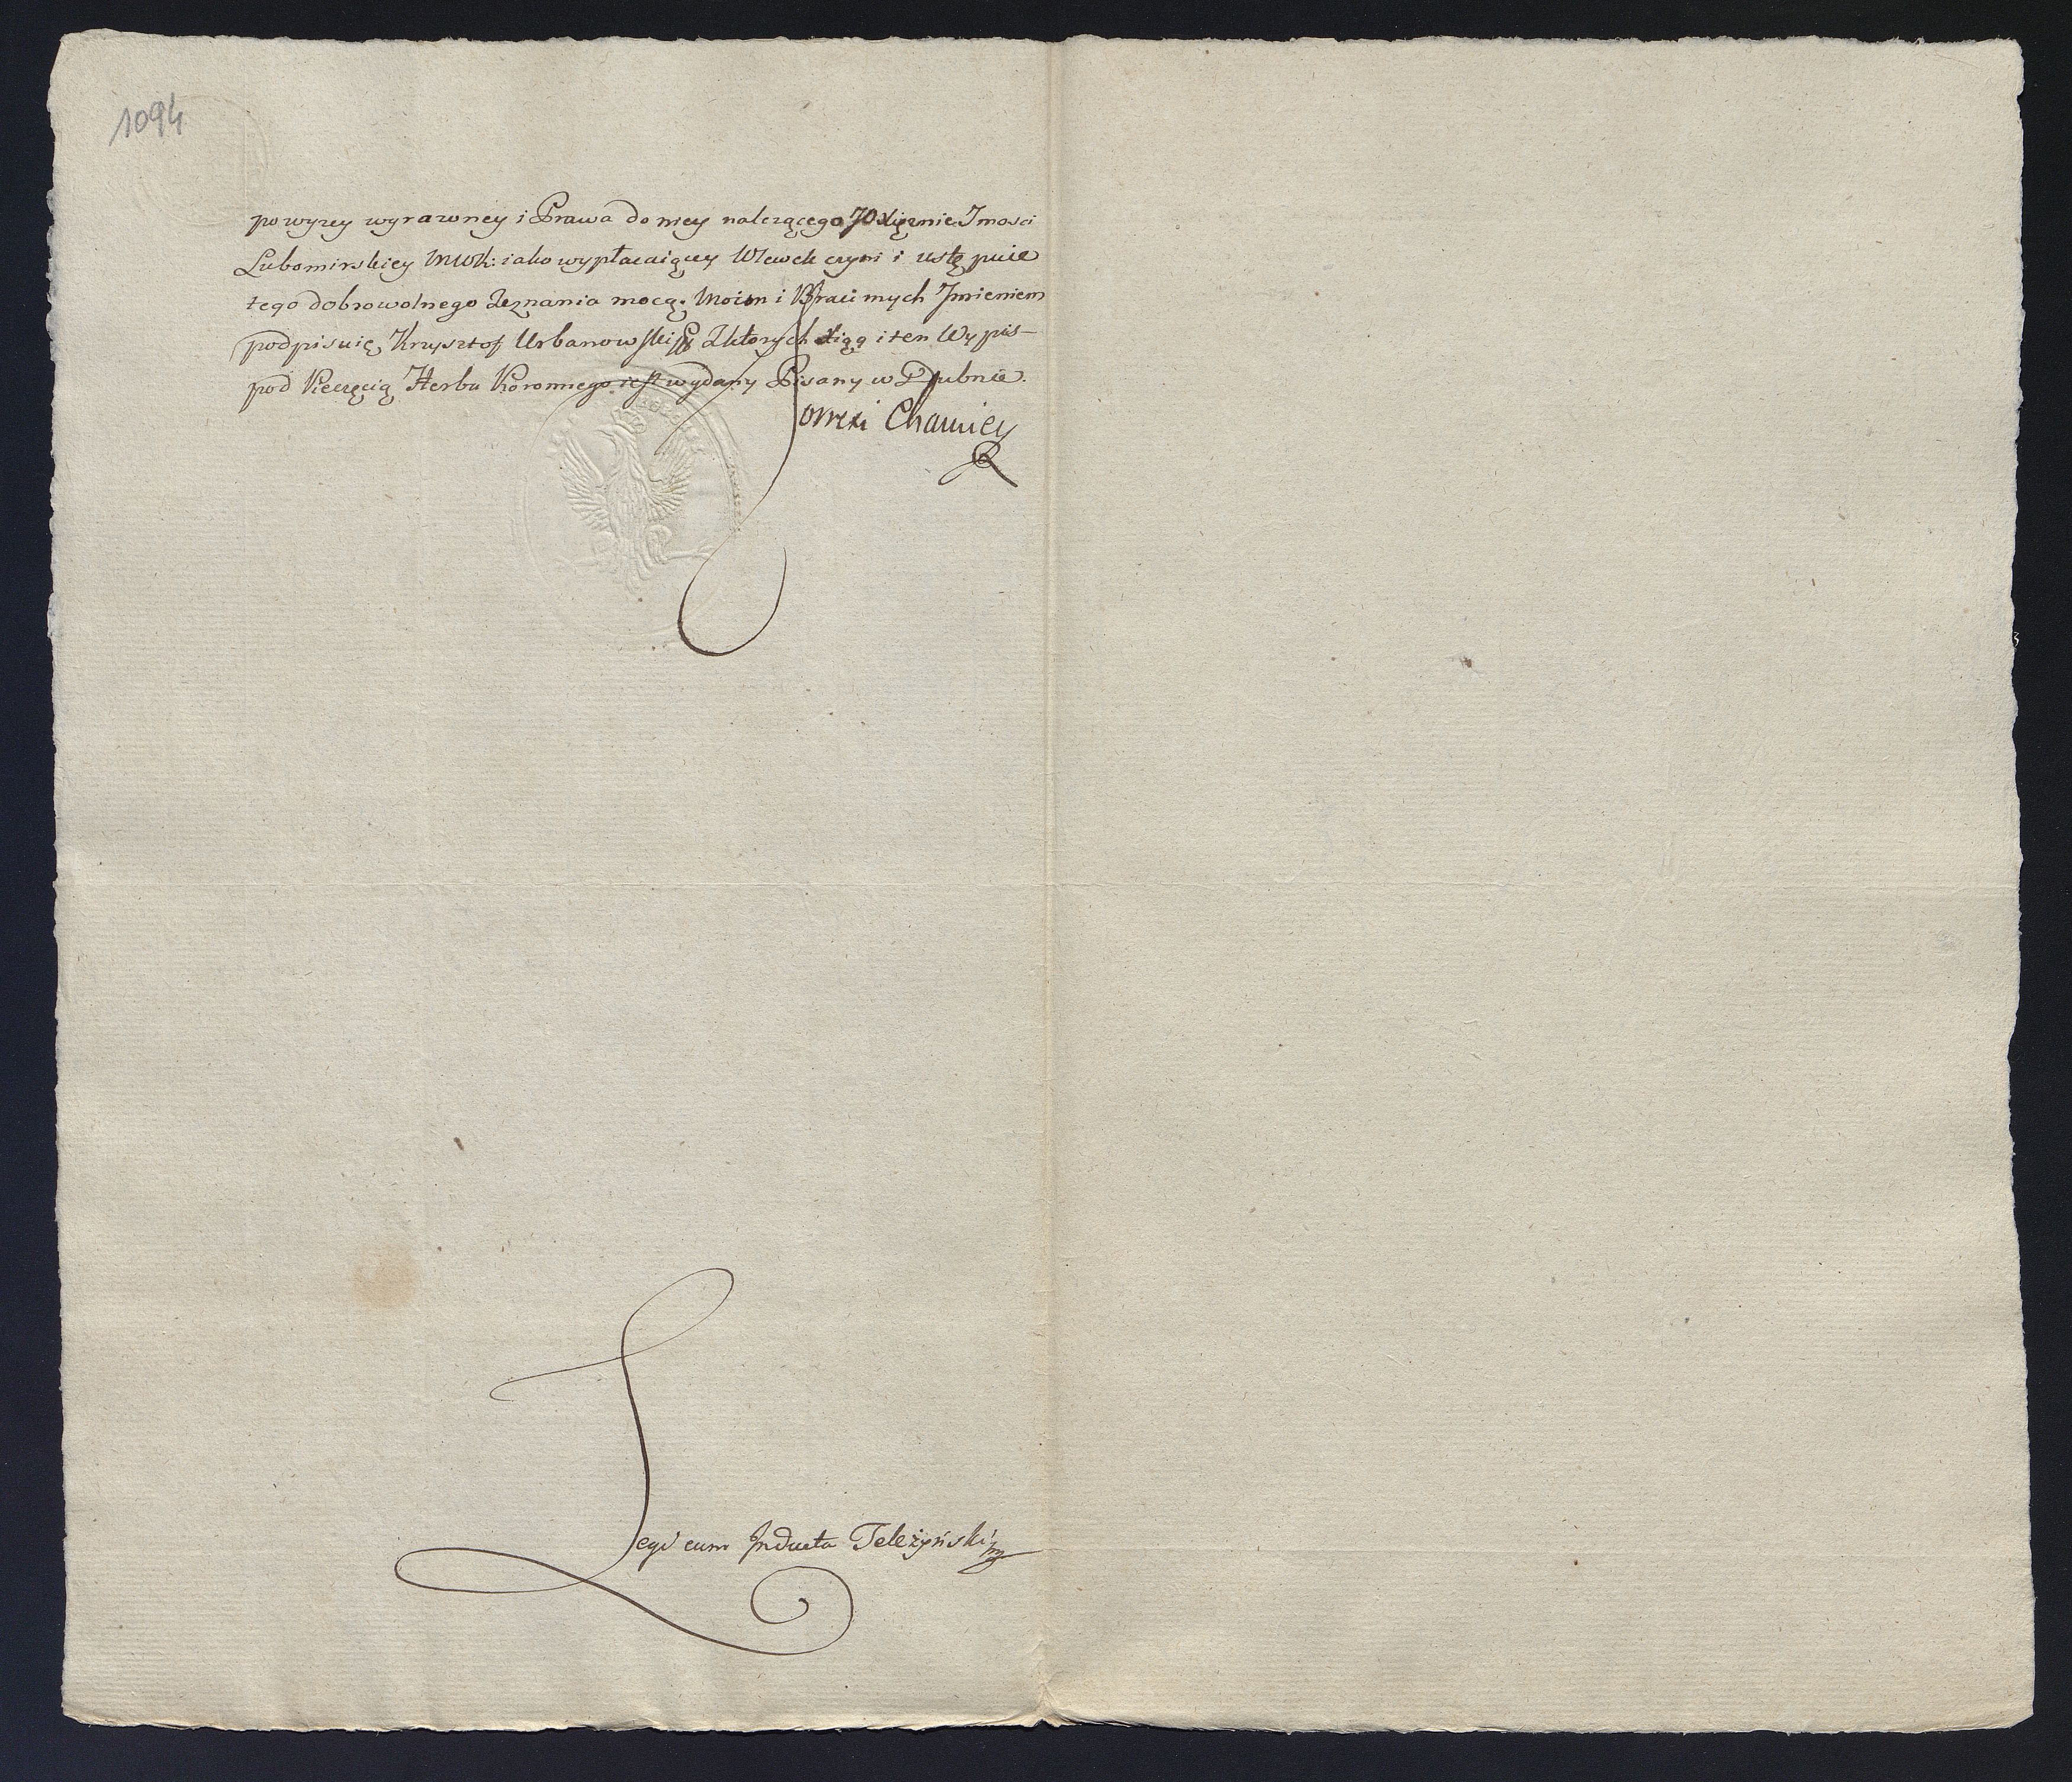 1094
powyzey wyrazoney i Prawa do niey należącego JO Xiężnie Imosci
Lubomirskiey MWK: iako wypłacaiącey Wlewek czyni i ustępuie
tego dobrowolnego Zeznania mocą. Moim i Braci mych Imieniem
podpisuię Krzysztof Urbanowski Z których Xiąg i ten Wypis
pod Pieczęcią Herbu Koronnego iest wydany Pisany w Dubnie.
Chamiey
Legi cum Inducta Teleżyński